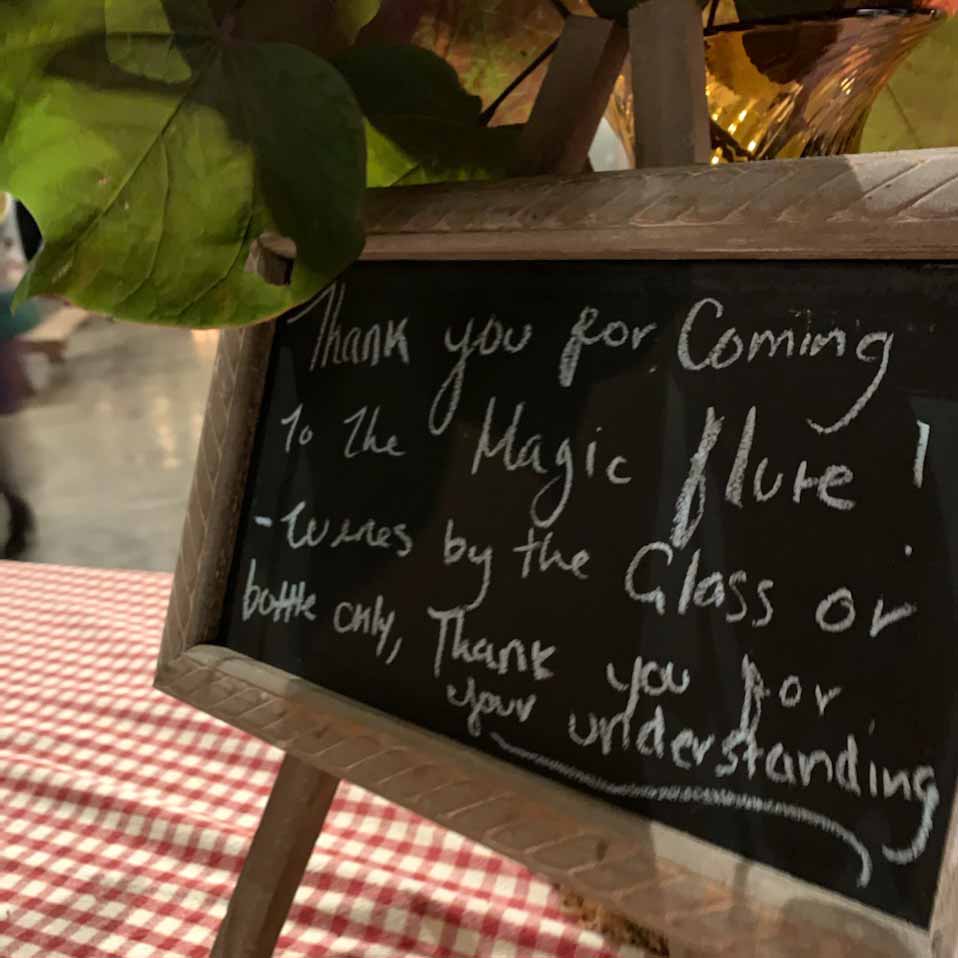 Thank you for Coming
To The Magic flute!
- Wines by the Glass or
bottle only, Thank you for
your understanding